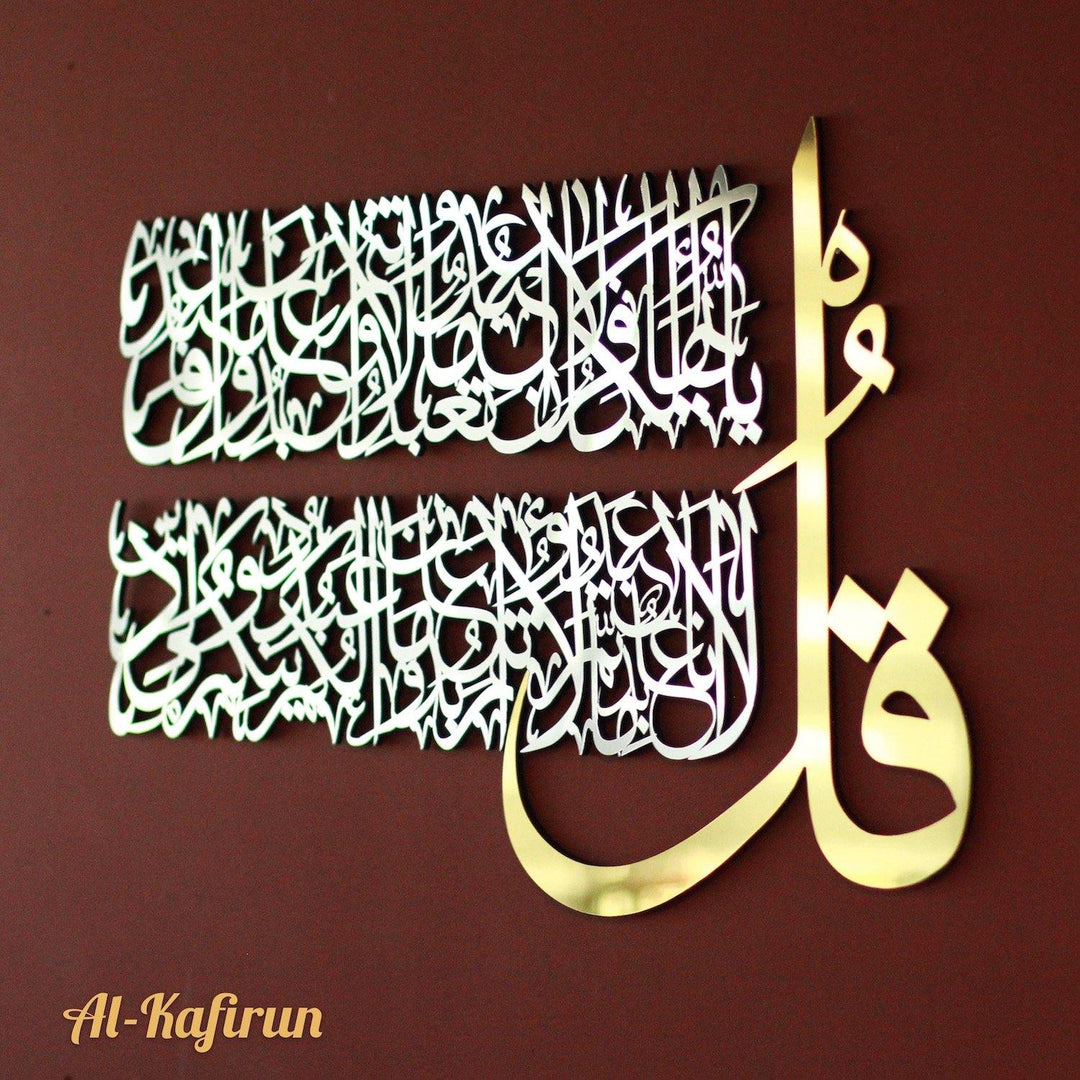 قُلْ
يا أيها الكافرون لا أعبد ما تعبدون ولا أنتم عابدون ما أعبد و
لا أنا عابد ما عبدتم ولا أنتم عابدون ما أعبد لكم دينكم ولي دين
Al-Kafirun